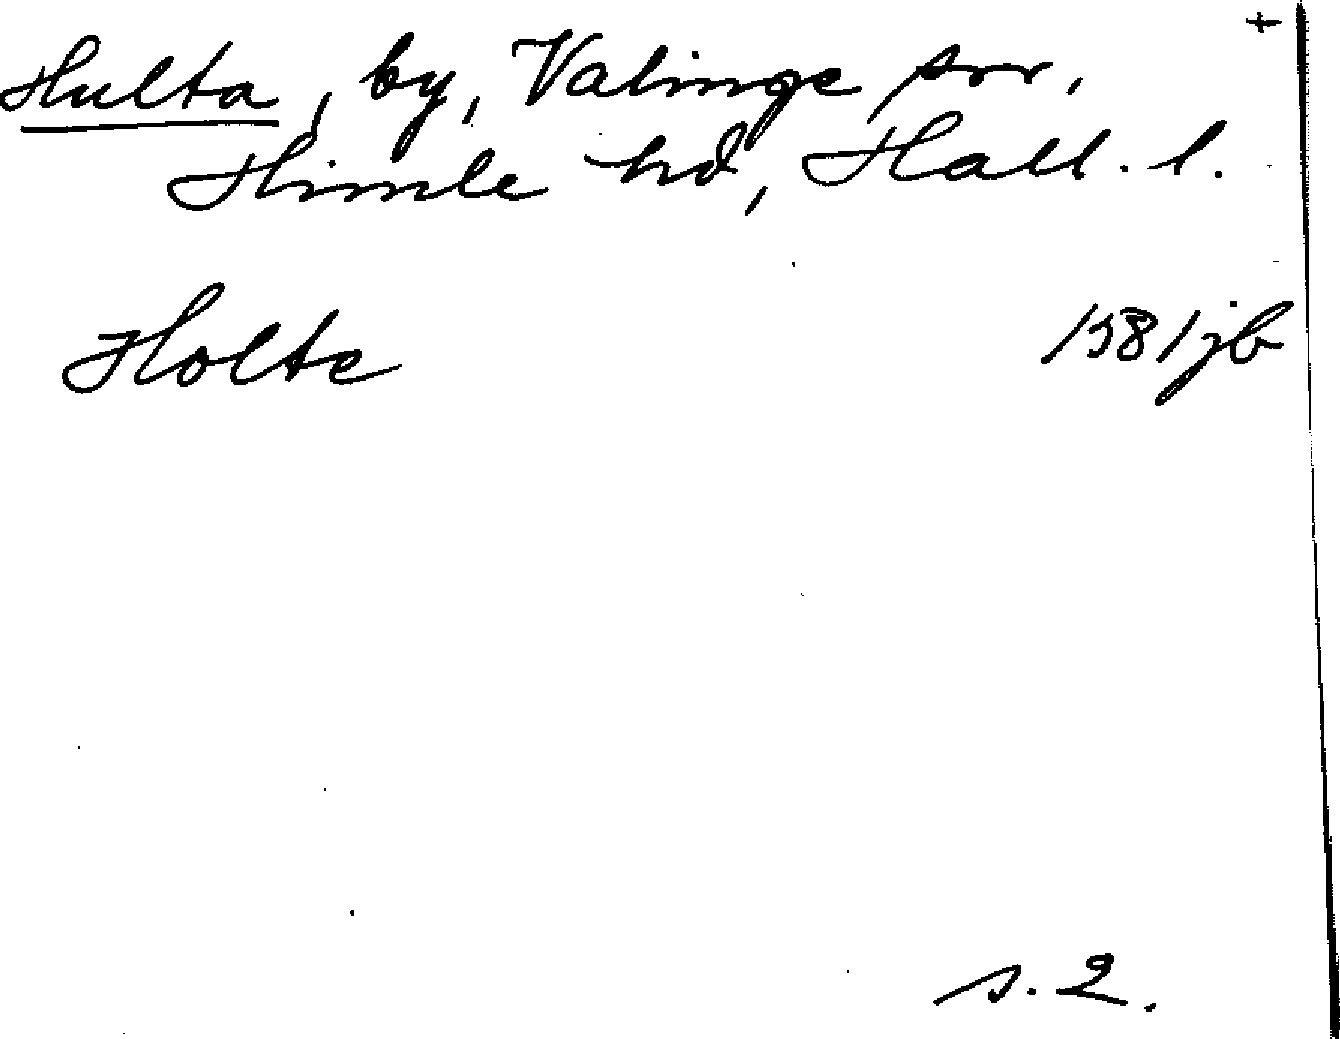 +
Hulta, by, Valinge sn,
Himle hd, Hall. l.
Holte 1581 jb
s. 2.